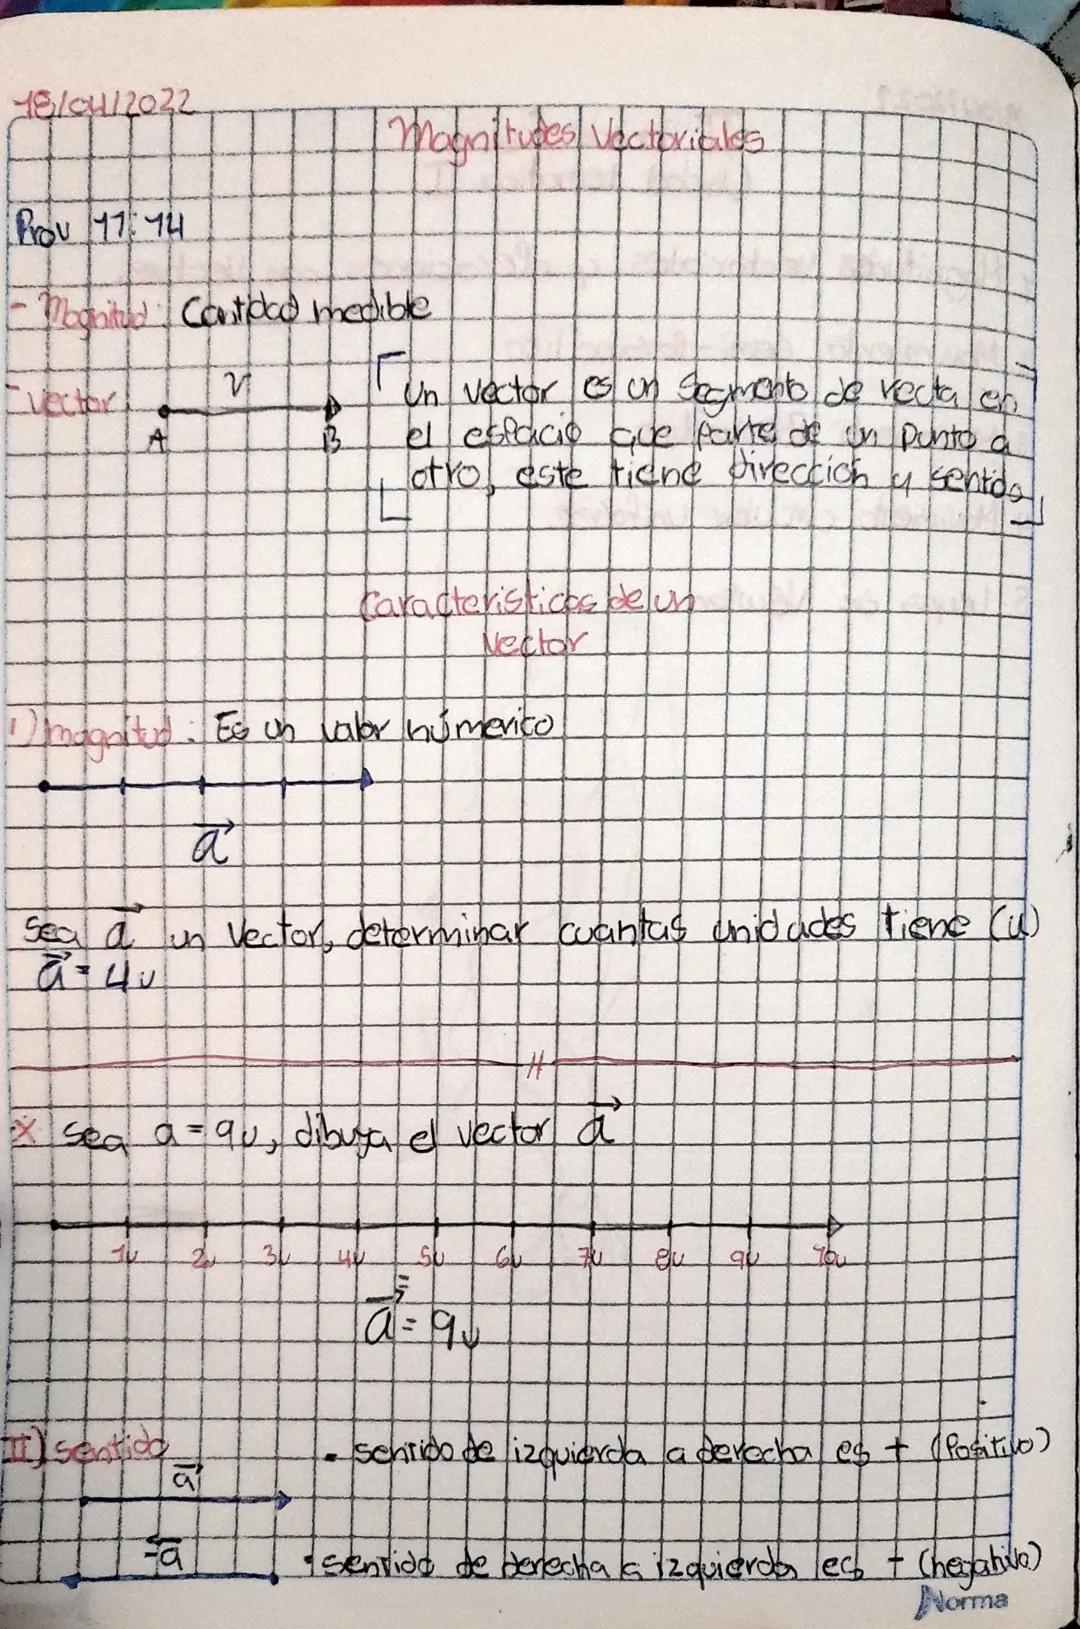 18/04/2022
Magnitudes Vectoriales
Prov 11:14
- Magnitud: Cantidad medible
- vector:
v
A
B
Un vector es un segmento de recta en
el espacio que parte de un punto a
otro, este tiene dirección y sentido
Caracteristicas de un
Vector
I) magnitud: Es un valor númerico
a
Sea a un vector, determinar cuantas unidades tiene (u)
a = 4u
X sea a = 9u, dibuja el vector a
1u 2u 3u 4u 5u 6u 7u 8u 9u 10u
a = 9u
II) sentido
a
- sentido de izquierda a derecha es + (Positivo)
-a
• sentido de derecha a izquierda es - (negativo)
Norma